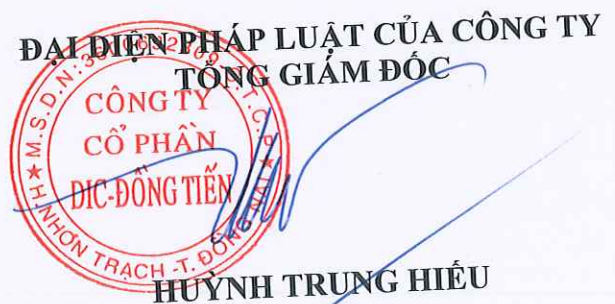 ĐẠI DIỆN PHÁP LUẬT CỦA CÔNG TY
TỔNG GIÁM ĐỐC
CÔNG TY
CỔ PHẦN
DIC-ĐỒNG TIẾN
M.S.D.N:
C.T.C.P
H.NHƠN TRẠCH -T. ĐỒNG NAI
HUỲNH TRUNG HIẾU